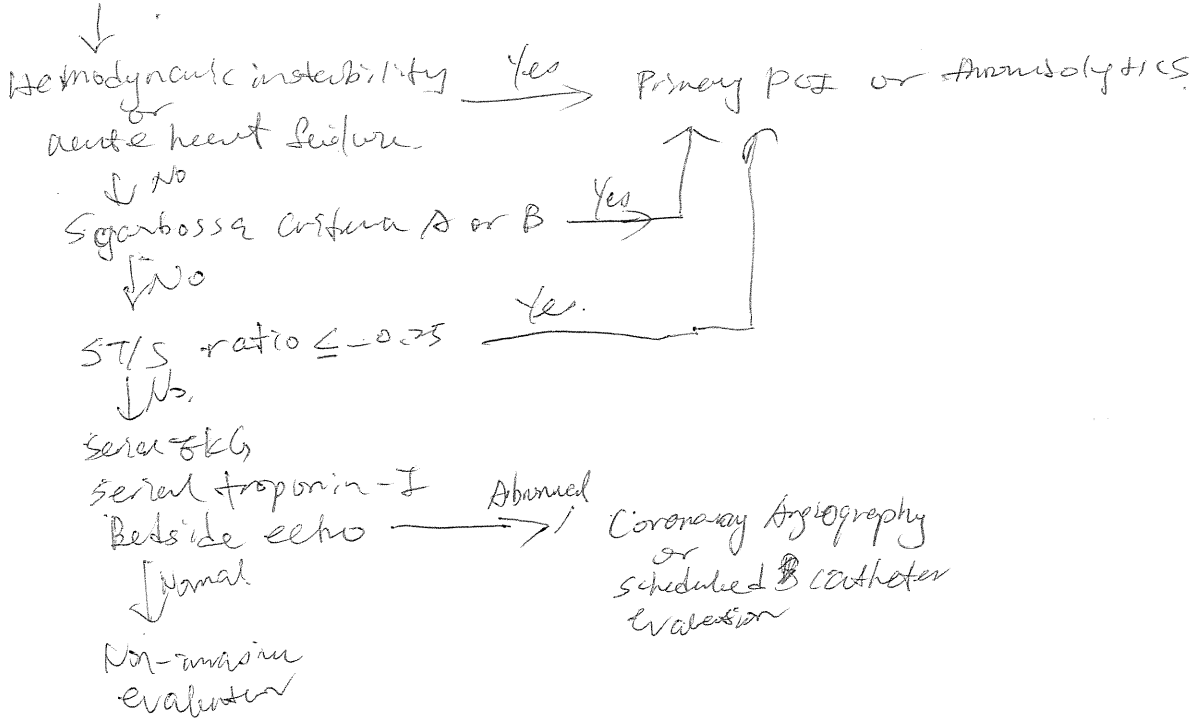 Hemodynamic instability
Yes
Primary PCI or thrombolytics
or
acute heart failure
No
Sgarbossa Criteria A or B
Yes
No
ST/S ratio ≤ -0.25
Yes.
No.
Serial EKG
Serial troponin-I
Bedside echo
Abnormal
Coronary Angiography
or
scheduled catheter
evaluation
Normal
Non-invasive
evaluation